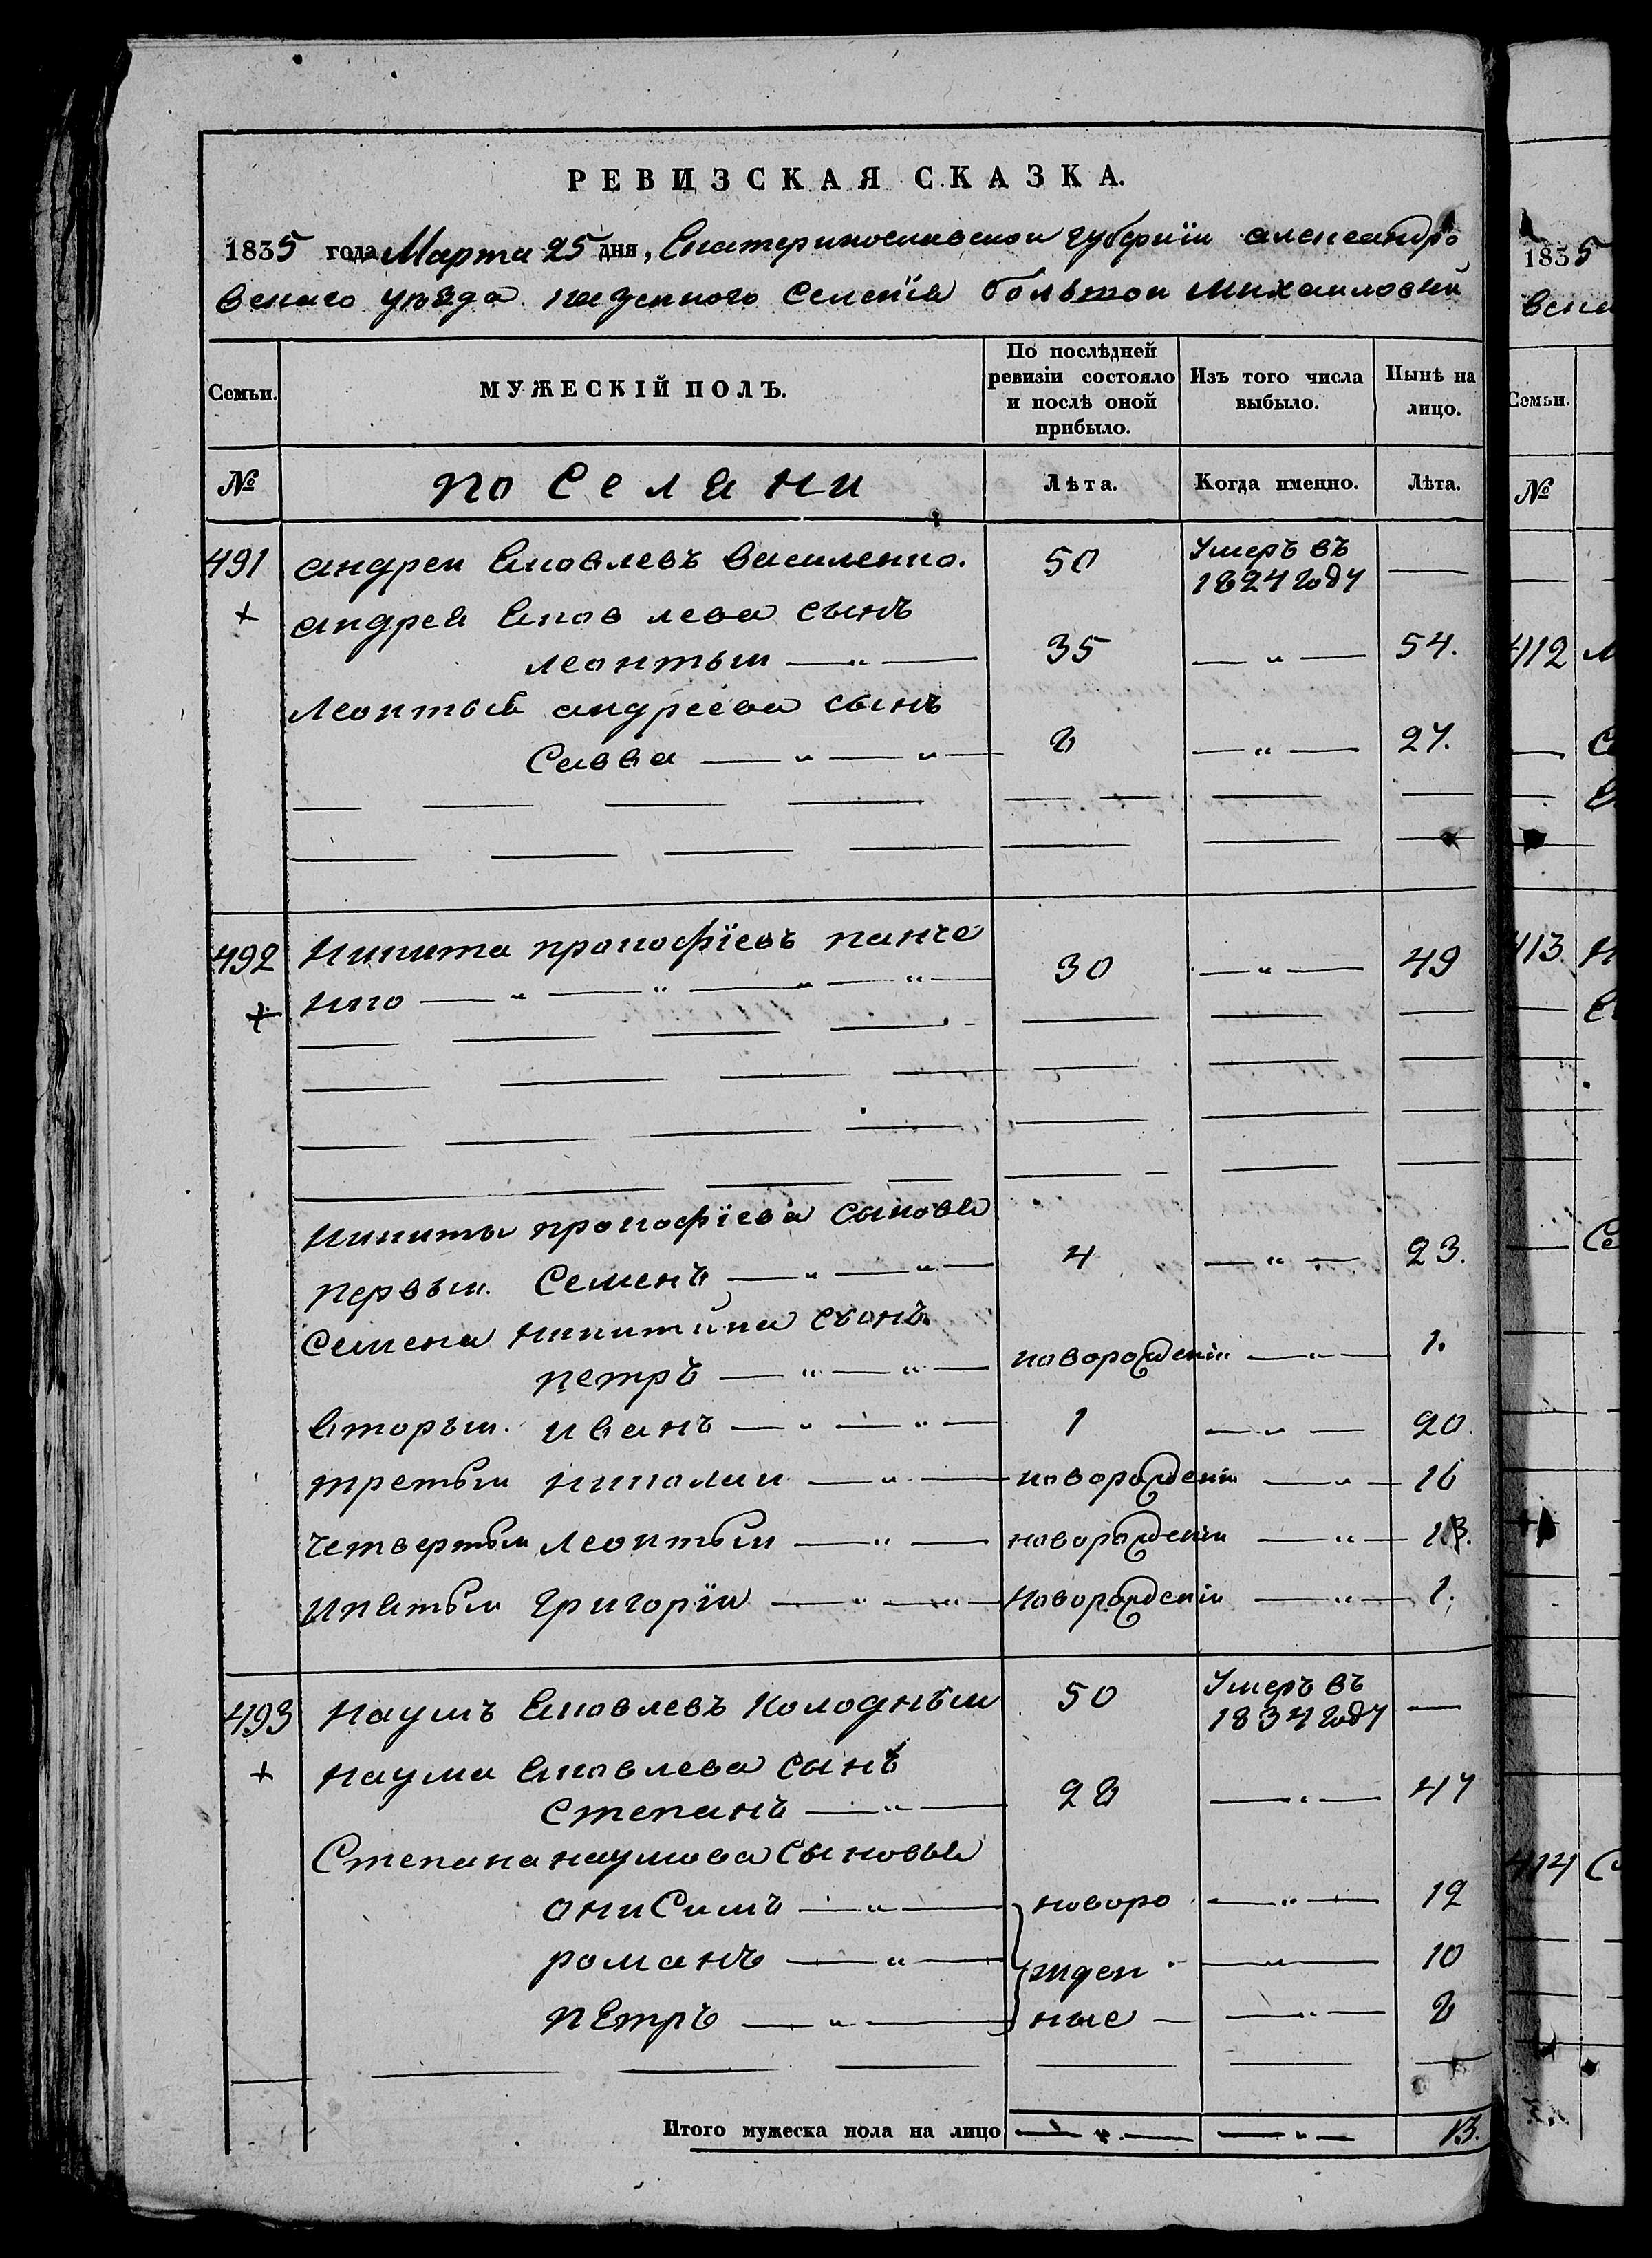 РЕВИЗСКАЯ СКАЗКА.
1835 года Марта 25 дня, Екатеринославской губернїи александро
вскаго уѣзда казенного селенїя большой михаиловки
Семьи. МУЖЕСКІЙ ПОЛЪ. По послѣдней ревизіи состояло и послѣ оной прибыло. Изъ того числа выбыло. Нынѣ на лицо.
№ поселяни Лѣта. Когда именно. Лѣта.
491 андрей Яковлевъ василенко. 50 Умеръ въ 1824 году —
+ андрея Яковлева сынъ
леонтый — „ — 35 — „ — 54.
Леонтыя андреева сынъ
Савва — „ — „ — 8 — „ — 27.
492 Никита прокофїевъ панче
+ нко — „ — „ — „ — „ — 30 — „ — 49
Никиты прокофїева сыновя
первый. Семенъ — „ — „ — 4 — „ — 23.
Семена никитина сынъ
петръ — „ — „ — новорожденїи — „ — 1.
вторый. иванъ — „ — „ — 1 — „ — 20.
третый николай — „ — новорожденїи — „ — 16
четвертый леонтый — „ — новорожденїи — „ — 13.
ипятый григорїи — „ — „ — новорожденїи — „ — 1.
493 Наумъ Яковлевъ колодный 50 Умеръ въ 1834 году —
+ Наума Яковлева сынъ
степанъ — „ — 28 — „ — 47
Степана наумова сыновья
онисимъ — „ — новоро — „ — 12
романъ — „ — жден — „ — 10
пЕтръ — „ — ные — — „ — 8
Итого мужеска пола на лицо — „ — — „ — 13.
1835
вска
Семьи.
№
412
413
414